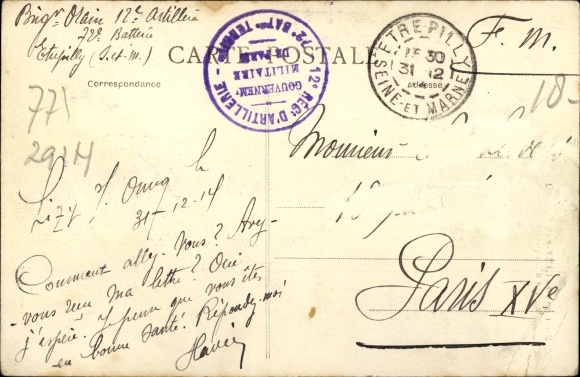 Brigr Olain 12e Artillerie
72e Batterie
Etrépilly (S. et M.)
CARTE POSTALE
Correspondance
Adresse
12e REGt D'ARTILLERIE - 72e BATie TERRITle
GOUVERNEMt
MILITAIRE
DE PARIS
ETREPILLY
30
31 12
SEINE-ET-MARNE
F. M.
18-
77\
2914
31-12-14
Comment allez-vous? Avez-
-vous reçu ma lettre? Oui
j'espère. Je pense que vous êtes
en bonne santé. Répondez-moi
Monsieur
Paris XVe